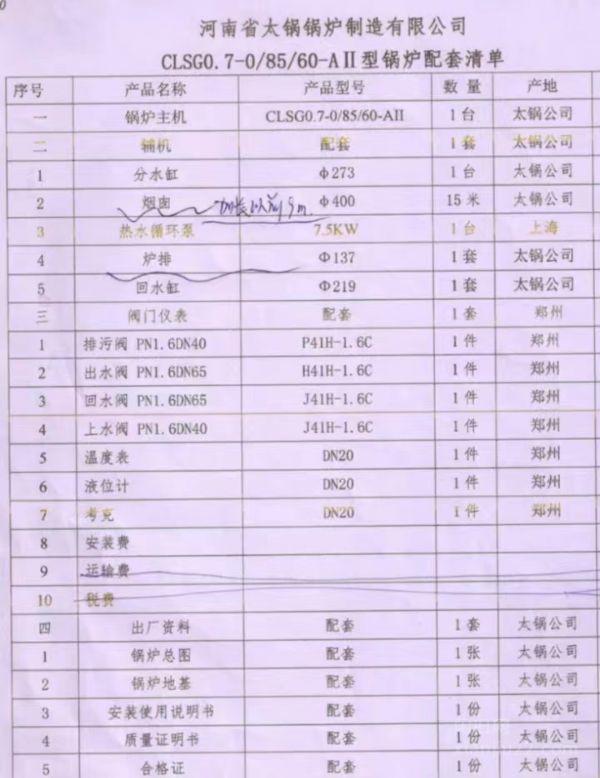 河南省太锅锅炉制造有限公司
CLSG0.7-0/85/60-AⅡ型锅炉配套清单
序号 产品名称 产品型号 数量 产地
一 锅炉主机 CLSG0.7-0/85/60-AII 1台 太锅公司
二 辅机 配套 1套 太锅公司
1 分水缸 Φ273 1台 太锅公司
2 烟囱 Φ400 15米 太锅公司
9m.
3 热水循环泵 7.5KW 1台 上海
4 炉排 Φ137 1套 太锅公司
5 回水缸 Φ219 1套 太锅公司
三 阀门仪表 配套 1套 郑州
1 排污阀 PN1.6DN40 P41H-1.6C 1件 郑州
2 出水阀 PN1.6DN65 H41H-1.6C 1件 郑州
3 回水阀 PN1.6DN65 J41H-1.6C 1件 郑州
4 上水阀 PN1.6DN40 J41H-1.6C 1件 郑州
5 温度表 DN20 1件 郑州
6 液位计 DN20 1件 郑州
7 考克 DN20 1件 郑州
8 安装费
9 运输费
10 税费
四 出厂资料 配套 1套 太锅公司
1 锅炉总图 配套 1张 太锅公司
2 锅炉地基 配套 1张 太锅公司
3 安装使用说明书 配套 1份 太锅公司
4 质量证明书 配套 1份 太锅公司
5 合格证 配套 1份 太锅公司